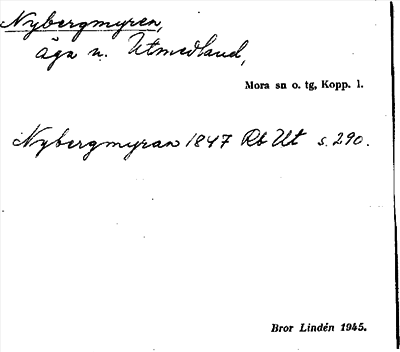 Nybergmyren,
äga n. Utmedland,
Mora sn o. tg, Kopp. l.
Nybergmyran 1847 Rb Ut s. 290.
Bror Lindén 1945.